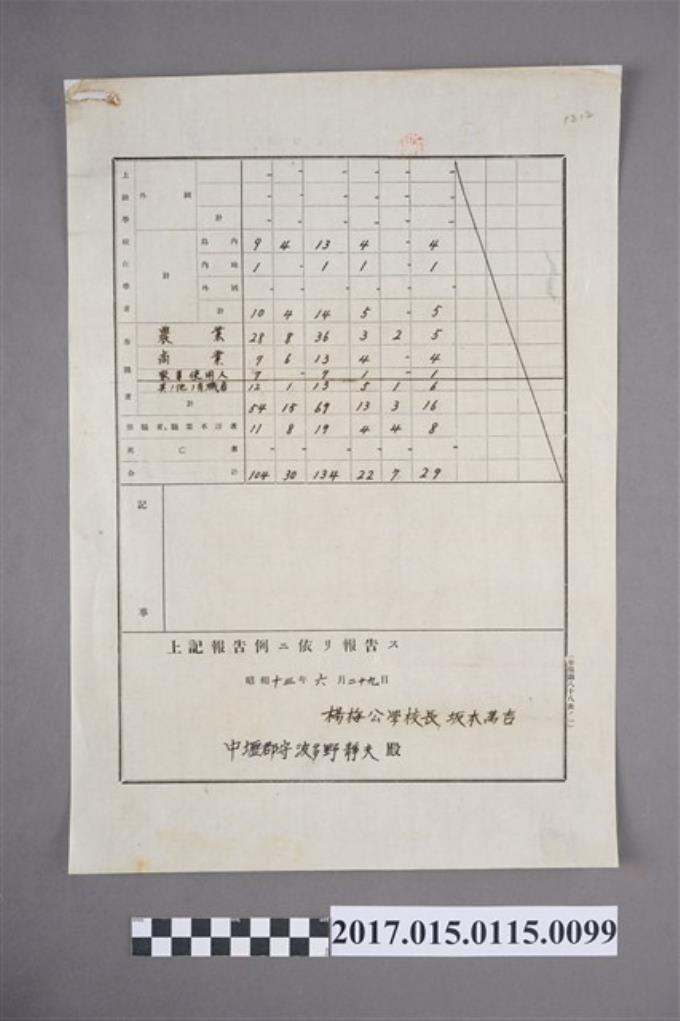 1212
上級學校在學者
外國 - - - - - -
- - - - - -
計 - - - - - -
計
島內 9 4 13 4 - 4
內地 1 - 1 1 - 1
外國 - - - - - -
計 10 4 14 5 - 5
有職者
農業 28 8 36 3 2 5
商業 7 6 13 4 - 4
使用人 7 - 7 1 - 1
其ノ他ノ有職者 12 1 13 5 1 6
計 54 15 69 13 3 16
無職者、職業不詳者 11 8 19 4 4 8
死亡者 - - - - - -
合計 104 30 134 22 7 29
記事
上記報告例ニ依リ報告ス
昭和十三年六月二十九日
楊梅公學校長 坂本萬吉
中壢郡守 波多野靜夫 殿
2017.015.0115.0099